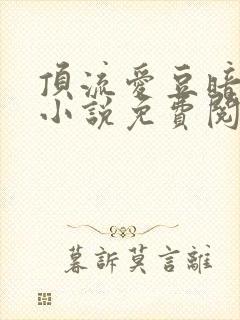 頂流愛豆暗
小說免費閱
暮訴莫言離